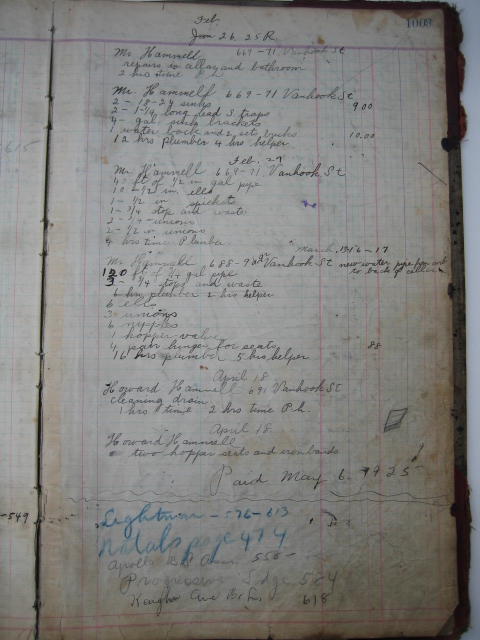 1009
Feb.
Jan 26, 25 R
Mr. Hammell 669-71 Vanhook St
repairs to alley and bathroom
2 hrs time P.h.
Mr. Hammell 669-71 Vanhook St
2 - 18-24 sinks 9.00
2 - 1-1/4 long lead S traps
4 - gal sink brackets
1 water back and 2 sets bricks 10.00
12 hrs plumber 4 hrs helper
Feb. 27
Mr Hammell 669-71 Vanhook St
ft of 1/2 in gal pipe
10 - 1/2 in. ells
1 - 1/2 in spickets
1 - 3/4 stop and waste
2 - 3/4 unions
2 - 1/2 in unions
4 hrs time Plumber
March 16-17
Mr. Hammell 688-90 Vanhook St new water pipe from
to back of cellar
120 ft of 3/4 gal pipe
3 - 3/4 stops and waste
6 hrs plumber 2 hrs helper
6 ells
3 unions
6 nipples
1 hopper valve
4 pair hinges for seats 88
16 hrs plumber 5 hrs helper
April 18
Howard Hammell 691 Vanhook St
cleaning drain
1 hrs time 2 hrs time P.h.
April 18
Howard Hammell
two hopper seats and
Paid May 6. 1925
-549
Lightman - 576-613
Natals page 474
Apollo 555-
Progressive Lodge 584
Ave 618